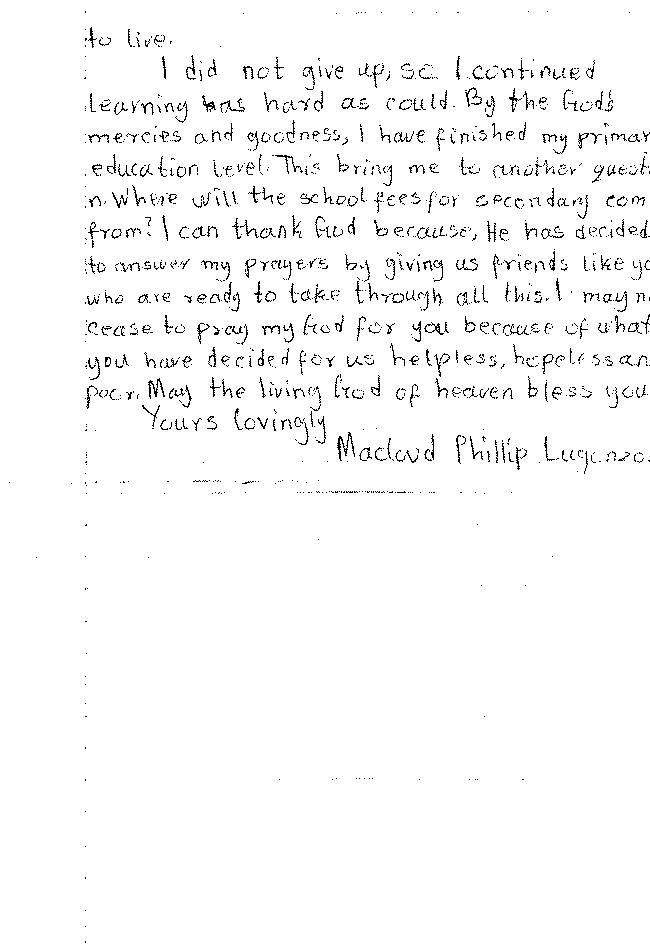 to live.
I did not give up, so I continued
learning has hard as could. By the God's
mercies and goodness, I have finished my primar
education level. This bring me to another quest
n. Where will the school fees for secondary com
from? I can thank God because, He has decided
to answer my prayers by giving us friends like yo
who are ready to take through all this. I may n
cease to pray my God for you because of what
you have decided for us helpless, hopeless an
poor. May the living God of heaven bless you
Yours lovingly
Macloud Phillip